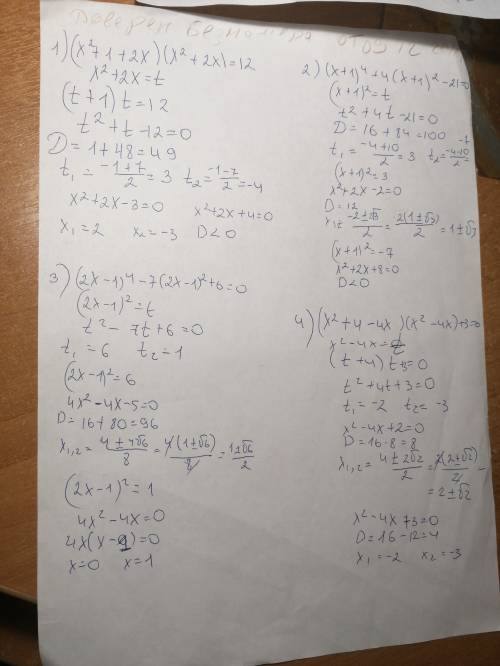 Доверен без номера от 09.12
1) (x²+1+2x)(x²+2x)=12
x²+2x=t
(t+1)t=12
t²+t-12=0
D=1+48=49
t₁=(-1+7)/2=3 t₂=(-1-7)/2=-4
x²+2x-3=0 x²+2x+4=0
x₁=2 x₂=-3 D<0
2) (x+1)⁴+4(x+1)²-21=0
(x+1)²=t
t²+4t-21=0
D=16+84=100
t₁=(-4+10)/2=3 t₂=(-4-10)/2=-7
(x+1)²=3
x²+2x-2=0
D=12
x₁,₂=(-2±√12)/2=2(1±√3)/2=1±√3
(x+1)²=-7
x²+2x+8=0
D<0
3) (2x-1)⁴-7(2x-1)²+6=0
(2x-1)²=t
t²-7t+6=0
t₁=6 t₂=1
(2x-1)²=6
4x²-4x-5=0
D=16+80=96
x₁,₂=(4±4√6)/8=4(1±√6)/8=(1±√6)/2
(2x-1)²=1
4x²-4x=0
4x(x-1)=0
x=0 x=1
4) (x²+4-4x)(x²-4x)+3=0
x²-4x=t
(t+4)t+3=0
t²+4t+3=0
t₁=-2 t₂=-3
x²-4x+2=0
D=16-8=8
x₁,₂=(4±2√2)/2=2(2±√2)/2=
=2±√2
x²-4x+3=0
D=16-12=4
x₁=-2 x₂=-3